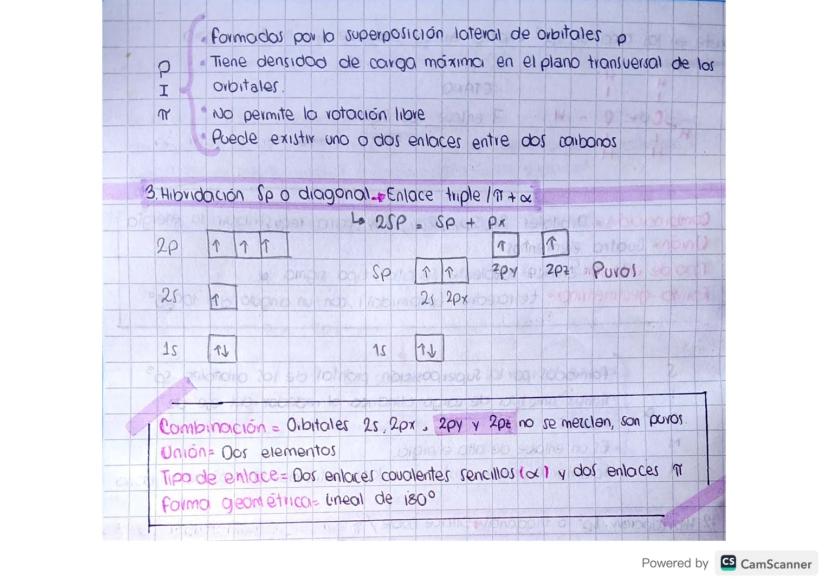 • Formados por la superposición lateral de orbitales p
• Tiene densidad de carga máxima en el plano transversal de los
orbitales.
P
I
π
• No permite la rotación libre
• Puede existir uno o dos enlaces entre dos carbonos
3. Hibridación Sp o diagonal → Enlace triple / π + α
↳ 2SP = SP + Px
2p ↑ ↑ ↑
↑ ↑
Sp ↑ ↑ 2py 2pz Puros
2s ↑ 2s 2px
1s ↑↓ 1s ↑↓
Combinación = Orbitales 2s, 2px, 2py y 2pz no se mezclan, son puros
Unión = Dos elementos
Tipo de enlace = Dos enlaces covalentes sencillos (α) y dos enlaces π
forma geométrica = Lineal de 180°
Powered by CS CamScanner